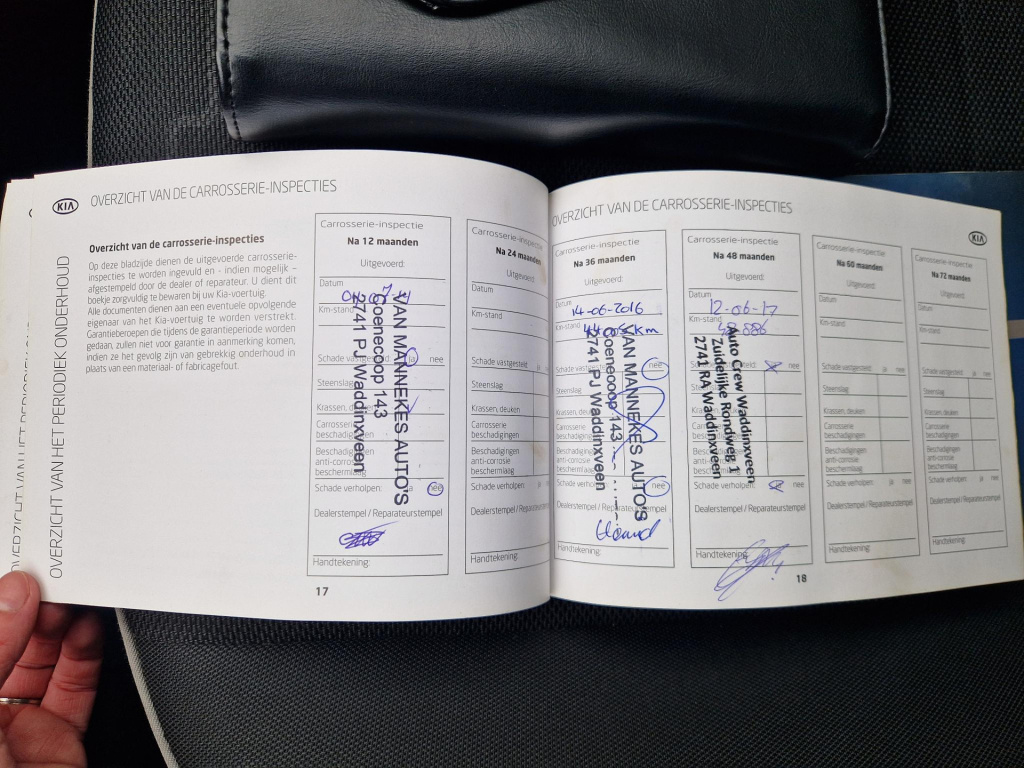 KIA
OVERZICHT VAN DE CARROSSERIE-INSPECTIES
OVERZICHT VAN HET PERIODIEK ONDERHOUD
Overzicht van de carrosserie-inspecties
Op deze bladzijde dienen de uitgevoerde carrosserie-
inspecties te worden ingevuld en - indien mogelijk –
afgestempeld door de dealer of reparateur. U dient dit
boekje zorgvuldig te bewaren bij uw Kia-voertuig.
Alle documenten dienen aan een eventuele opvolgende
eigenaar van het Kia-voertuig te worden verstrekt.
Garantieberoepen die tijdens de garantieperiode worden
gedaan, zullen niet voor garantie in aanmerking komen,
indien ze het gevolg zijn van gebrekkig onderhoud in
plaats van een materiaal- of fabricagefout.
Carrosserie-inspectie
Na 12 maanden
Uitgevoerd:
Datum
Km-stand
Schade vastgesteld: ja nee
Steenslag
Krassen, deuken
Carrosserie
beschadigingen
Beschadigingen
anti-corrosie
beschermlaag
Schade verholpen: ja nee
Dealerstempel / Reparateurstempel
Handtekening:
VAN MANNEKES AUTO'S
Coenecoop 143
2741 PJ Waddinxveen
17
Carrosserie-inspectie
Na 24 maanden
Uitgevoerd:
Datum
Km-stand
Schade vastgesteld: ja
Steenslag
Krassen, deuken
Carrosserie
beschadigingen
Beschadigingen
anti-corrosie
beschermlaag
Schade verholpen: ja
Dealerstempel / Reparateurstempel
Handtekening:
OVERZICHT VAN DE CARROSSERIE-INSPECTIES
KIA
Carrosserie-inspectie
Na 36 maanden
Uitgevoerd:
Datum
14-06-2016
Km-stand
km
Schade vastgesteld: nee
Steenslag
Krassen, deuken
Carrosserie
beschadigingen
Beschadigingen
anti-corrosie
beschermlaag
Schade verholpen: nee
Dealerstempel / Reparateurstempel
Handtekening:
VAN MANNEKES AUTO'S
Coenecoop 143
2741 PJ Waddinxveen
Carrosserie-inspectie
Na 48 maanden
Uitgevoerd:
Datum
12-06-17
Km-stand
48.886
nee
Steenslag
Krassen, deuken
Carrosserie
beschadigingen
Beschadigingen
anti-corrosie
beschermlaag
Schade verholpen: nee
Dealerstempel / Reparateurstempel
Handtekening:
Auto Crew Waddinxveen
Zuidelijke Rondweg 1
2741 RA Waddinxveen
18
Carrosserie-inspectie
Na 60 maanden
Uitgevoerd:
Datum
Km-stand
Schade vastgesteld: ja nee
Steenslag
Krassen, deuken
Carrosserie
beschadigingen
Beschadigingen
anti-corrosie
beschermlaag
Schade verholpen: ja nee
Dealerstempel / Reparateurstempel
Handtekening:
Carrosserie-inspectie
Na 72 maanden
Uitgevoerd:
Datum
Km-stand
Schade vastgesteld: ja nee
Steenslag
Krassen, deuken
Carrosserie
beschadigingen
Beschadigingen
anti-corrosie
beschermlaag
Schade verholpen: ja nee
Dealerstempel / Reparateurstempel
Handtekening: